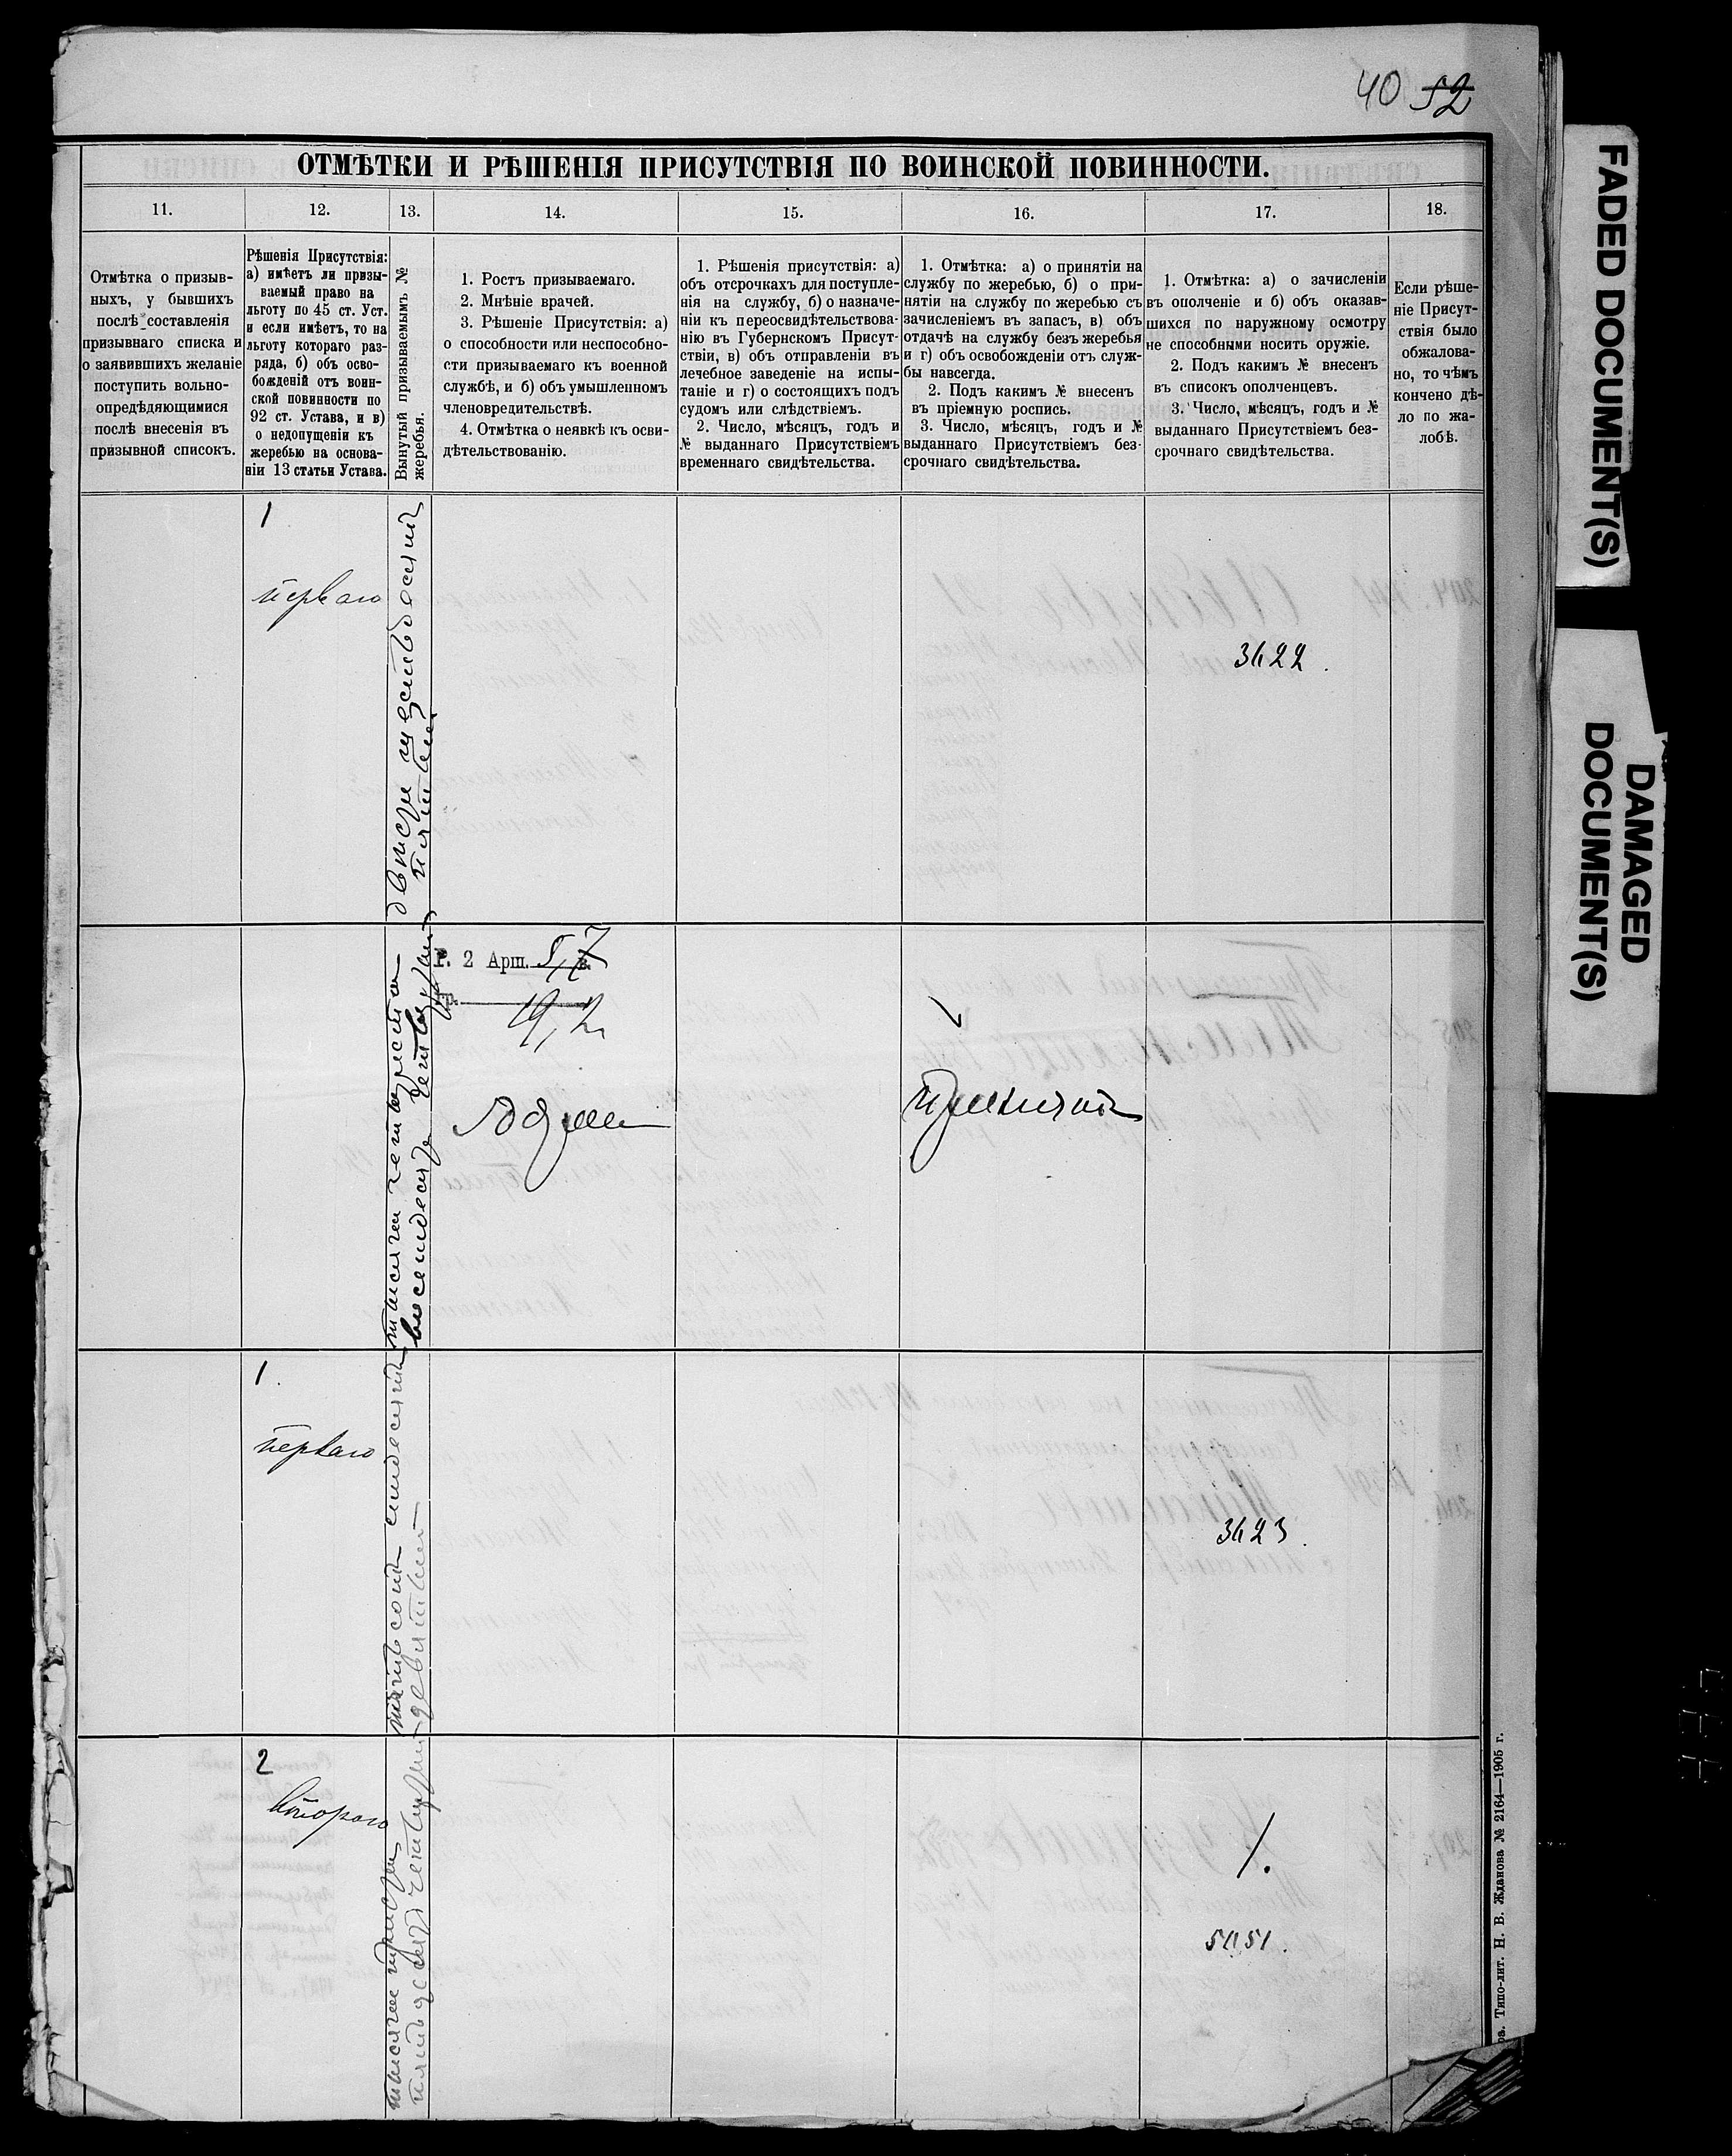 40 52
ОТМѢТКИ И РѢШЕНІЯ ПРИСУТСТВІЯ ПО ВОИНСКОЙ ПОВИННОСТИ.
11.
12.
13.
14.
15.
16.
17.
18.
Отмѣтка о призыв-
ныхъ, у бывшихъ
послѣ составленія
призывнаго списка и
о заявившихъ желаніе
поступить вольно-
опредѣляющимися
послѣ внесенія въ
призывной списокъ.
Рѣшенія Присутствія:
а) имѣетъ ли призы-
ваемый право на
льготу по 45 ст. Уст.
и если имѣетъ, то на
льготу котораго раз-
ряда, б) объ осво-
божденій отъ воин-
ской повинности по
92 ст. Устава, и в)
о недопущеніи къ
жеребью на основа-
ніи 13 статьи Устава.
Вынутый призываемымъ №
жеребья.
1. Ростъ призываемаго.
2. Мнѣніе врачей.
3. Рѣшеніе Присутствія: а)
о способности или неспособно-
сти призываемаго къ военной
службѣ, и б) объ умышленномъ
членовредительствѣ.
4. Отмѣтка о неявкѣ къ осви-
дѣтельствованію.
1. Рѣшенія присутствія: а)
объ отсрочкахъ для поступле-
нія на службу, б) о назначе-
ніи къ переосвидѣтельствова-
нію въ Губернскомъ Присут-
ствіи, в) объ отправленіи въ
лечебное заведеніе на испы-
таніе и г) о состоящихъ подъ
судомъ или слѣдствіемъ.
2. Число, мѣсяцъ, годъ и
№ выданнаго Присутствіемъ
временнаго свидѣтельства.
1. Отмѣтка: а) о принятіи на
службу по жеребью, б) о при-
нятіи на службу по жеребью съ
зачисленіемъ въ запасъ, в) объ
отдачѣ на службу безъ жеребья
и г) объ освобожденіи отъ служ-
бы навсегда.
2. Подъ какимъ № внесенъ
въ пріемную роспись.
3. Число, мѣсяцъ, годъ и №
выданнаго Присутствіемъ без-
срочнаго свидѣтельства.
1. Отмѣтка: а) о зачисленіи
въ ополченіе и б) объ оказав-
шихся по наружному осмотру
не способными носить оружіе.
2. Подъ какимъ № внесенъ
въ списокъ ополченцевъ.
3. Число, мѣсяцъ, годъ и №
выданнаго Присутствіемъ без-
срочнаго свидѣтельства.
Если рѣше-
ніе Присут-
ствія было
обжалова-
но, то чѣмъ
кончено дѣ-
ло по жа-
лобѣ.
1
перваго
двѣсти шестьдесятъ
пять
3422.
тысяча четыреста
восемьдесятъ четыре
Р. 2 Арш. 5/7 в.
Гр.
19 1/2
Годенъ
принятъ
1.
перваго
пятьсотъ семьдесятъ
девять
3423.
2
втораго
тысяча триста
пятьдесятъ четыре
1.
5451.
Типо-лит. Н. В. Жданова № 2164—1905 г.
FADED DOCUMENT(S)
DAMAGED
DOCUMENT(S)